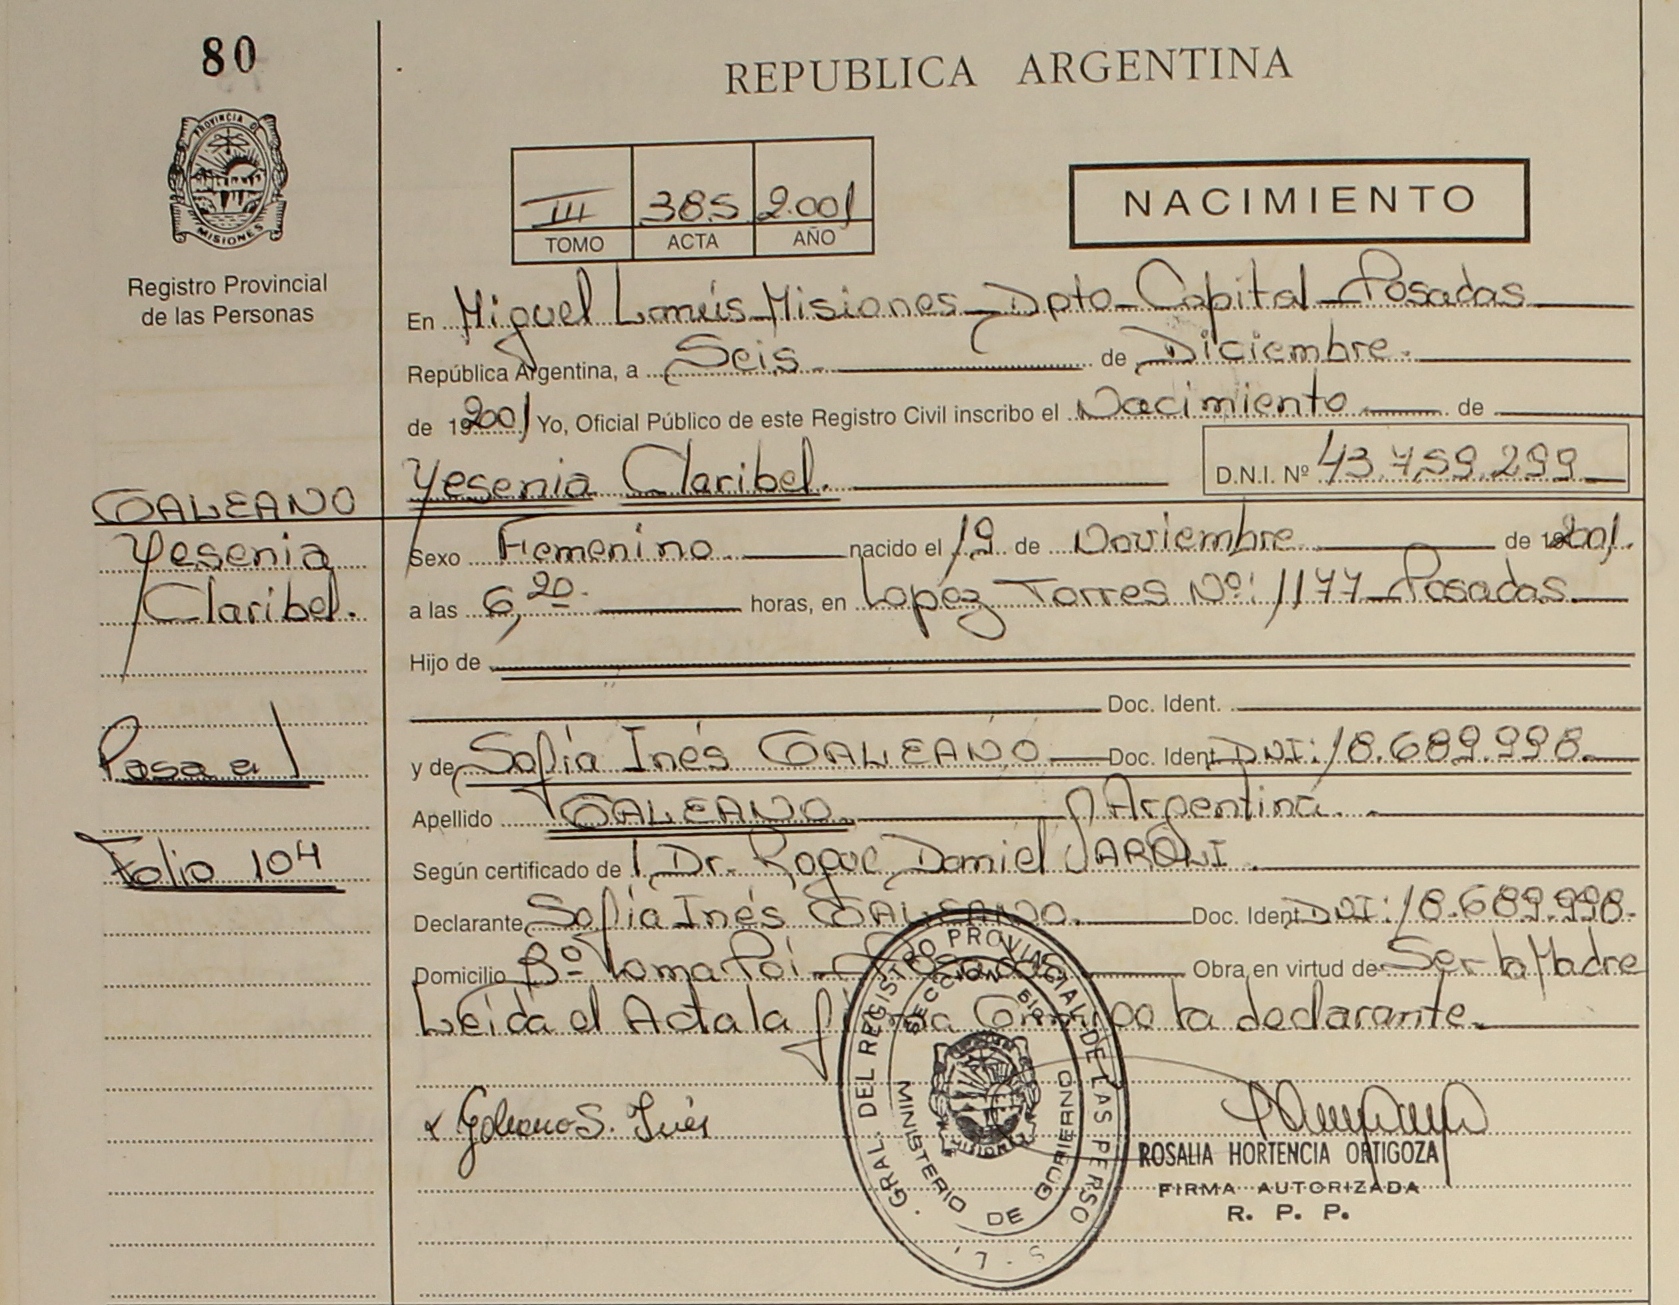 80
REPUBLICA ARGENTINA
PROVINCIA D
MISIONES
Registro Provincial
de las Personas
III 385 2.001
TOMO ACTA AÑO
NACIMIENTO
En Miguel Lanús Misiones Dpto Capital Posadas
República Argentina, a Seis de Diciembre.
de 192001 Yo, Oficial Público de este Registro Civil inscribo el Nacimiento de
Yesenia Claribel. D.N.I. Nº 43.759.299
GALEANO
Yesenia
Claribel.
Sexo Femenino nacido el 19 de Noviembre de 192001.
a las 6,20. horas, en Lopez Torres Nº: 1177 Posadas
Hijo de
Doc. Ident.
y de Sofía Inés GALEANO Doc. Ident DNI: 18.689.998.
Apellido GALEANO Argentina.
Según certificado de Dr. Roque Daniel JAROLI.
Declarante Sofía Inés GALEANO. Doc. Ident DNI: 18.689.998.
Domicilio Bº Yoma Poi Posadas Obra en virtud de Ser la Madre
Leída el Acta la firma Conmigo la declarante.
Pasa al
Folio 104
x Galeano S. Inés
GRAL. DEL REGISTRO PROVINCIAL DE LAS PERSO
SECCION
MINISTERIO DE GOBIERNO
MISIONES
ROSALIA HORTENCIA ORTIGOZA
FIRMA AUTORIZADA
R. P. P.